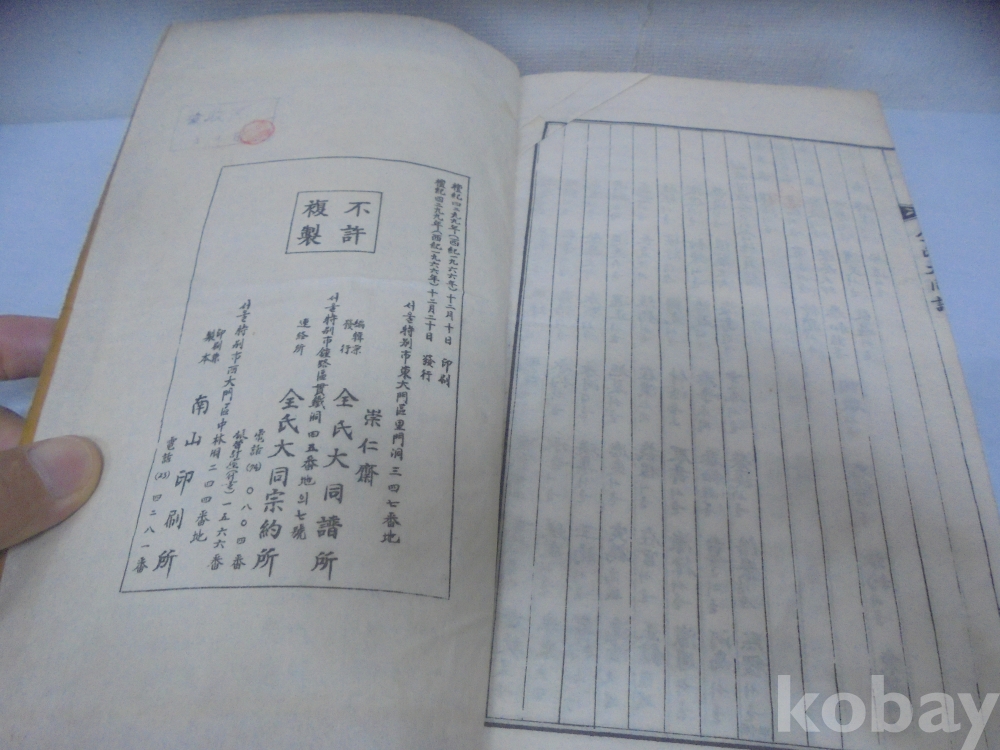 不許
複製
檀紀四二九九年(西紀一九六六年)十二月十日 印刷
檀紀四二九九年(西紀一九六六年)十二月二十日 發行
서울特別市東大門區里門洞三四七番地
崇仁齋
編輯兼
發行
全氏大同譜所
서울特別市鍾路區貫鐵洞四五番地의七號
連絡所
全氏大同宗約所
電話(75)〇八〇四番
一五六六番
서울特別市西大門區中林洞二〇四番地
印刷兼
製本
南山印刷所
電話(23)四二八一番
kobay